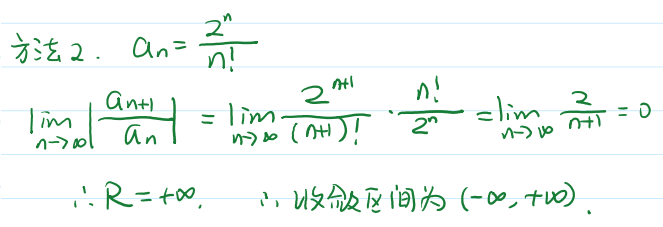 方法2. aₙ = 2ⁿ/n!
lim_{n→∞} |aₙ₊₁/aₙ| = lim_{n→∞} 2ⁿ⁺¹/(n+1)! · n!/2ⁿ = lim_{n→∞} 2/(n+1) = 0
∴ R = +∞. ∴ 收敛区间为 (-∞, +∞).